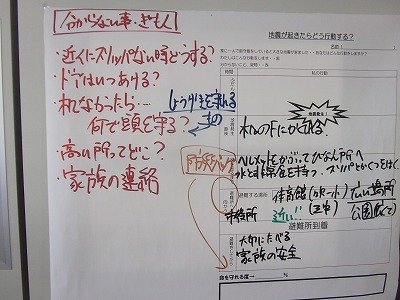 分からない事・ぎもん
・近くにスリッパない時どうする?
・ドアはいつあける?
・れなかったら…
何で頭を守る?
しょうげきを守れる
もの
・高い所ってどこ?
・家族の連絡
防災マップ
地震が起きたらどう行動する?
名前(
時間
私の行動
地震発生!
机の下にかくれる!
ヘルメットをかぶってひなん所へ
水と非常食を持つ。スリッパとかくつをはく
避難する場所
体育館
広い場所
市役所
近い
公園
避難所到着
大切にたべる
家族の安全
命を守れる度→
%